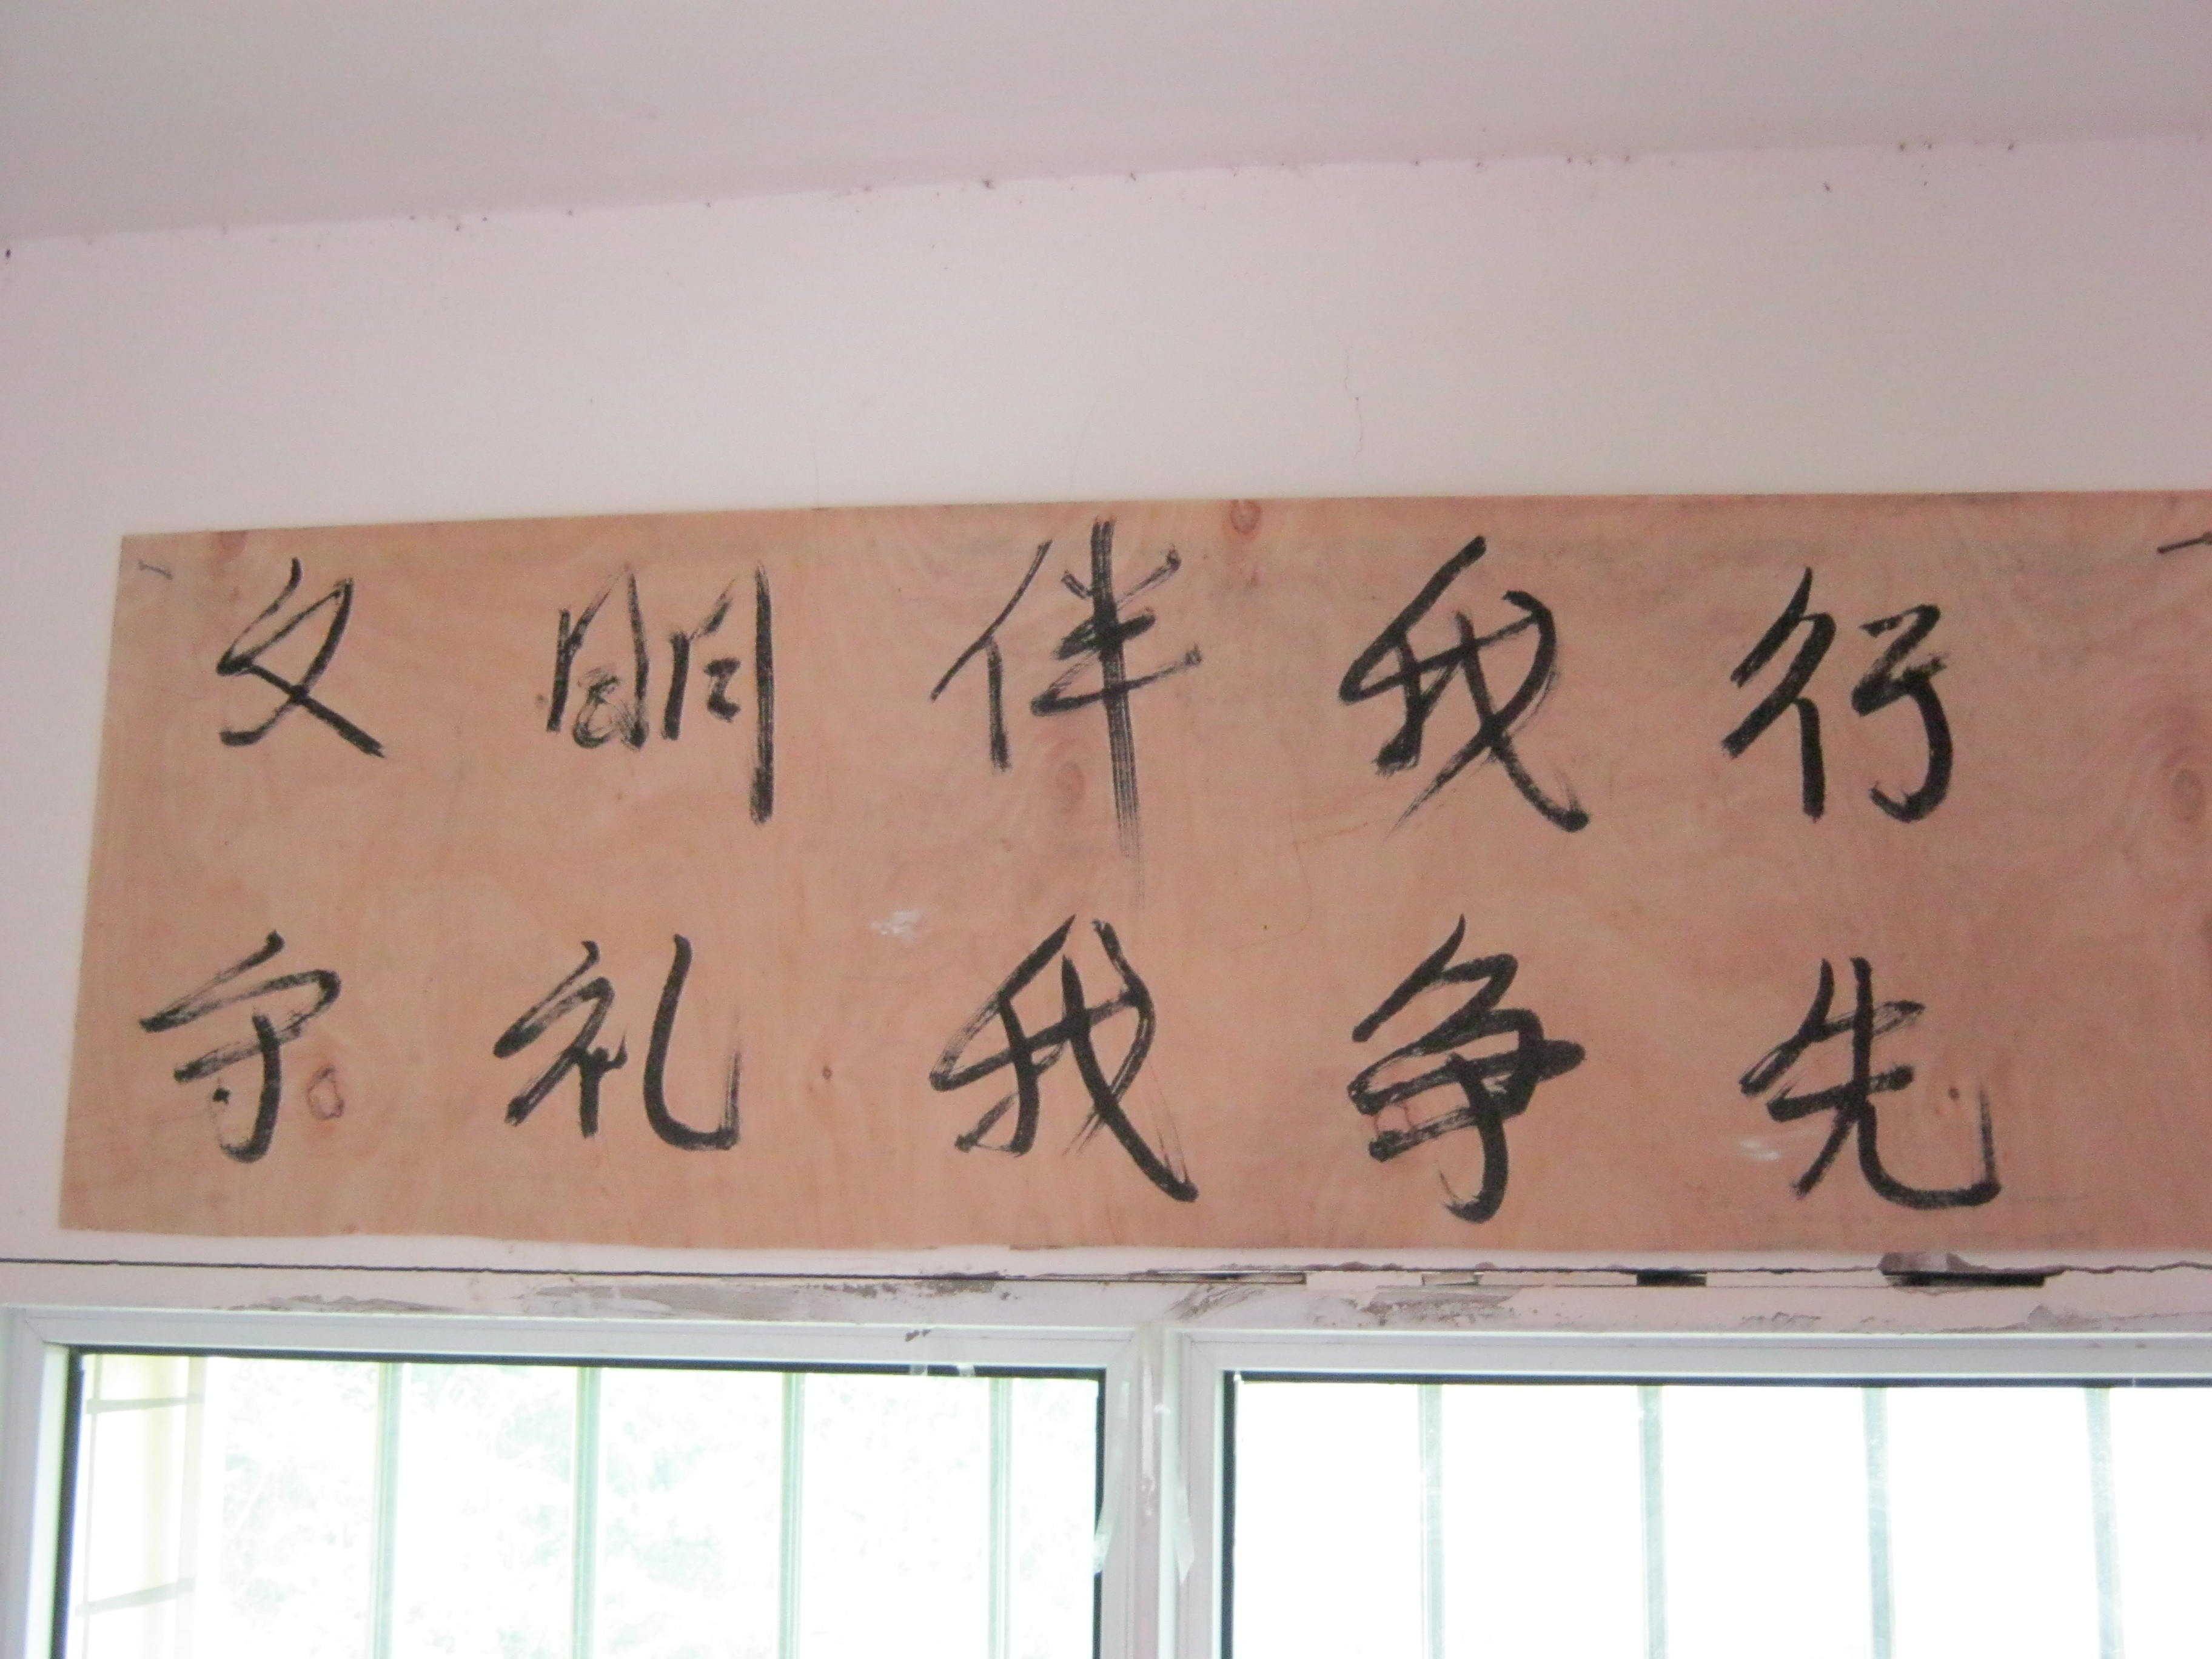 文明伴我行
守礼我争先